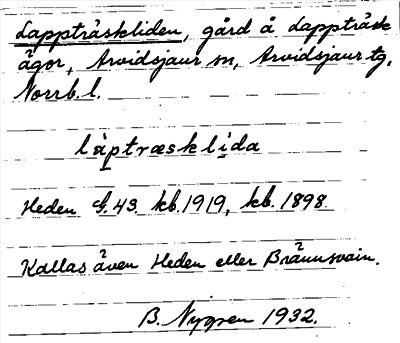 Lappträskliden, gård å Lappträsk
ägor, Arvidsjaur sn, Arvidsjaur tg,
Norrb. l.
làptræsklida
Heden G.43. kb.1919, kb.1898.
Kallas även Heden eller Brännsvain.
B. Nygren 1932.